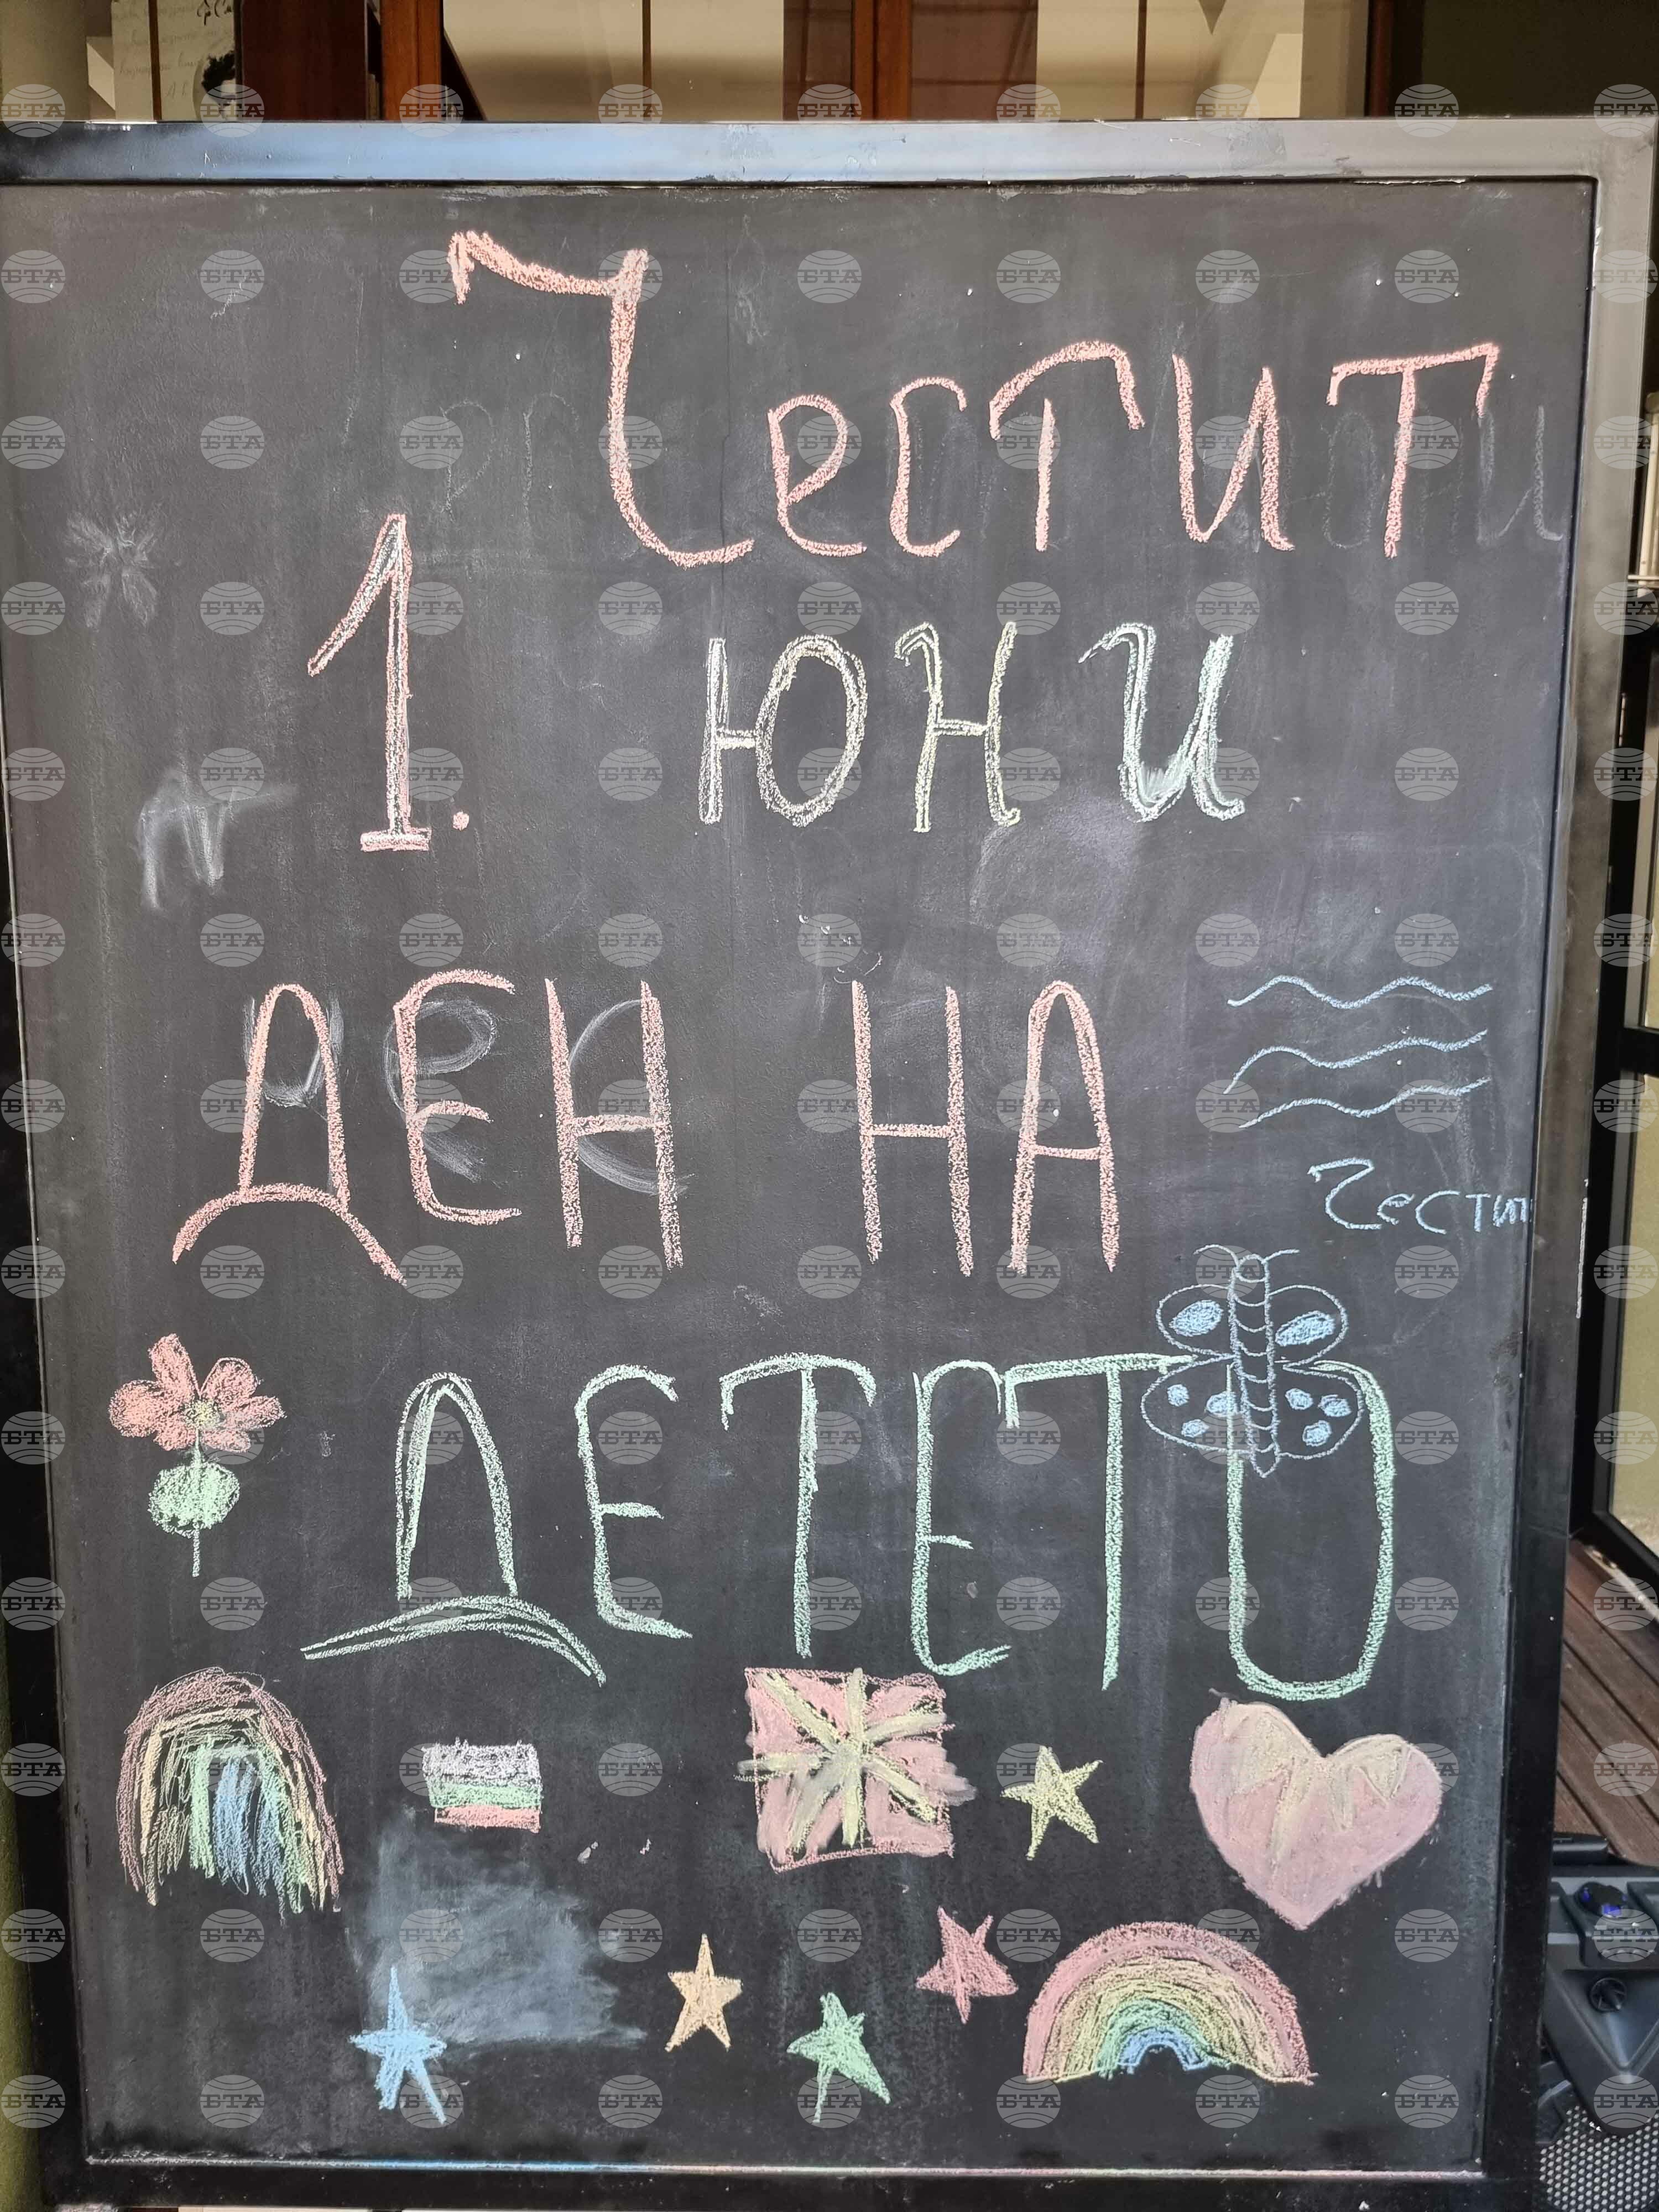 Честит
1. юни
ДЕН НА
Честит
ДЕТЕТО
БТА